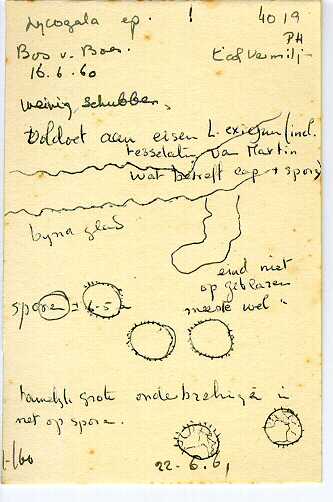 Lycogala ep. ! 4019
PH
Bos v. Boen.
16.6.60
weinig schubben,
Voldoet aan eisen L. exiguum (incl.
tesselatie van Martin
wat betreft cap + spore)
byna glad
eind niet
op geblazen
meeste wel "
spore = 6-5
tamelijk grote onderbrekingen
net op spore.
1-/60
22.6.61